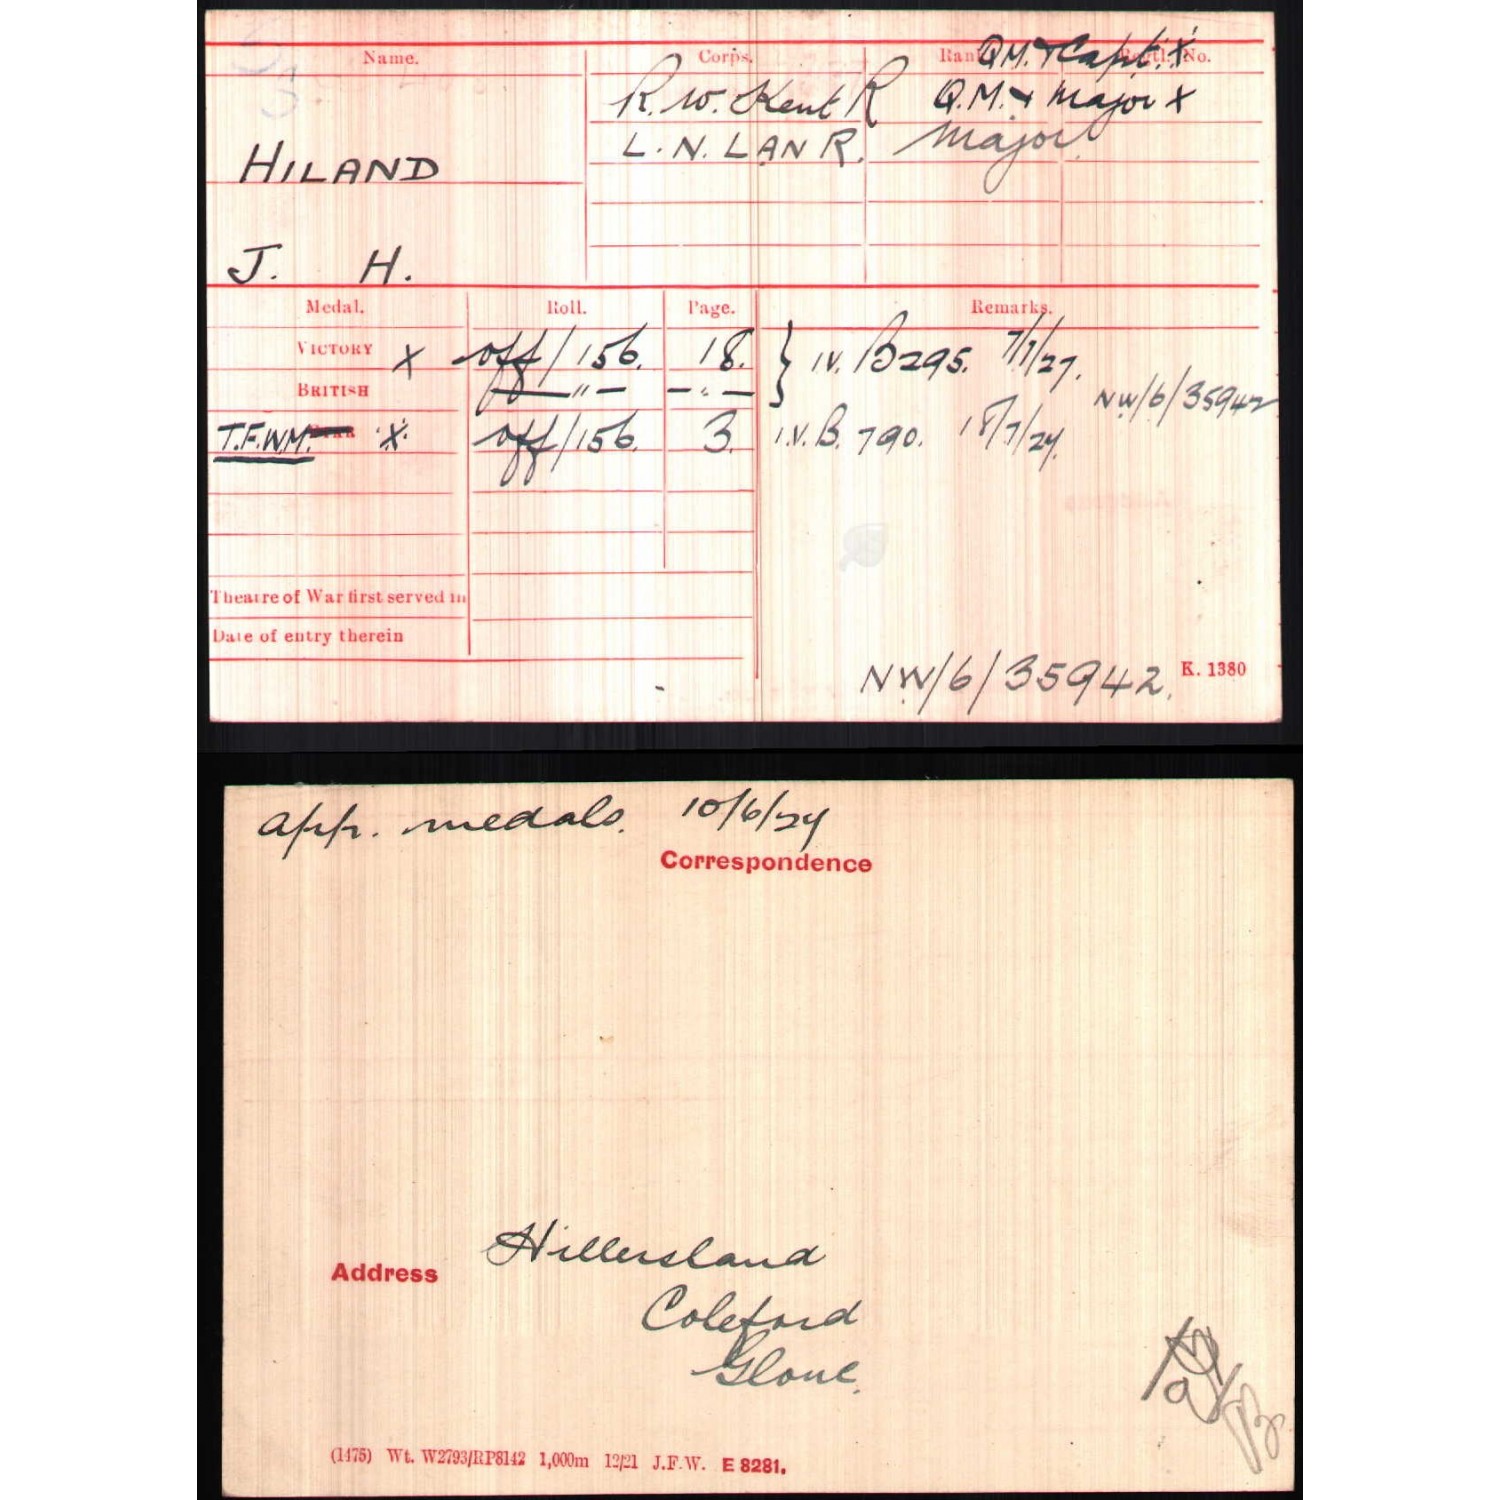 Name. Corps. Rank. Regtl. No.
QM. & Capt. X
R. W. Kent R Q.M. & Major X
L. N. LAN R. Major
HILAND
J. H.
Medal. Roll. Page. Remarks.
VICTORY X off/156. 18. } IV. B295. 7/7/27.
BRITISH — " — — " — NW/6/35942
T.F.W.M. STAR X off/156. 3. I.V.B. 790. 18/7/24.
Theatre of War first served in
Date of entry therein
NW/6/35942. K. 1380
app. medals. 10/6/24
Correspondence
Address Hillersland
Coleford
Glouc.
(1475) Wt. W2793/RP8142 1,000m 12/21 J.F.W. E 8281.